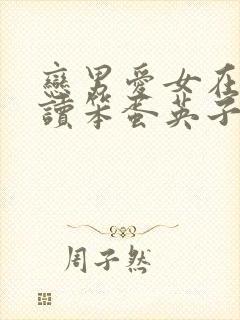 戀男愛女在
讀笨蛋英子
周子然